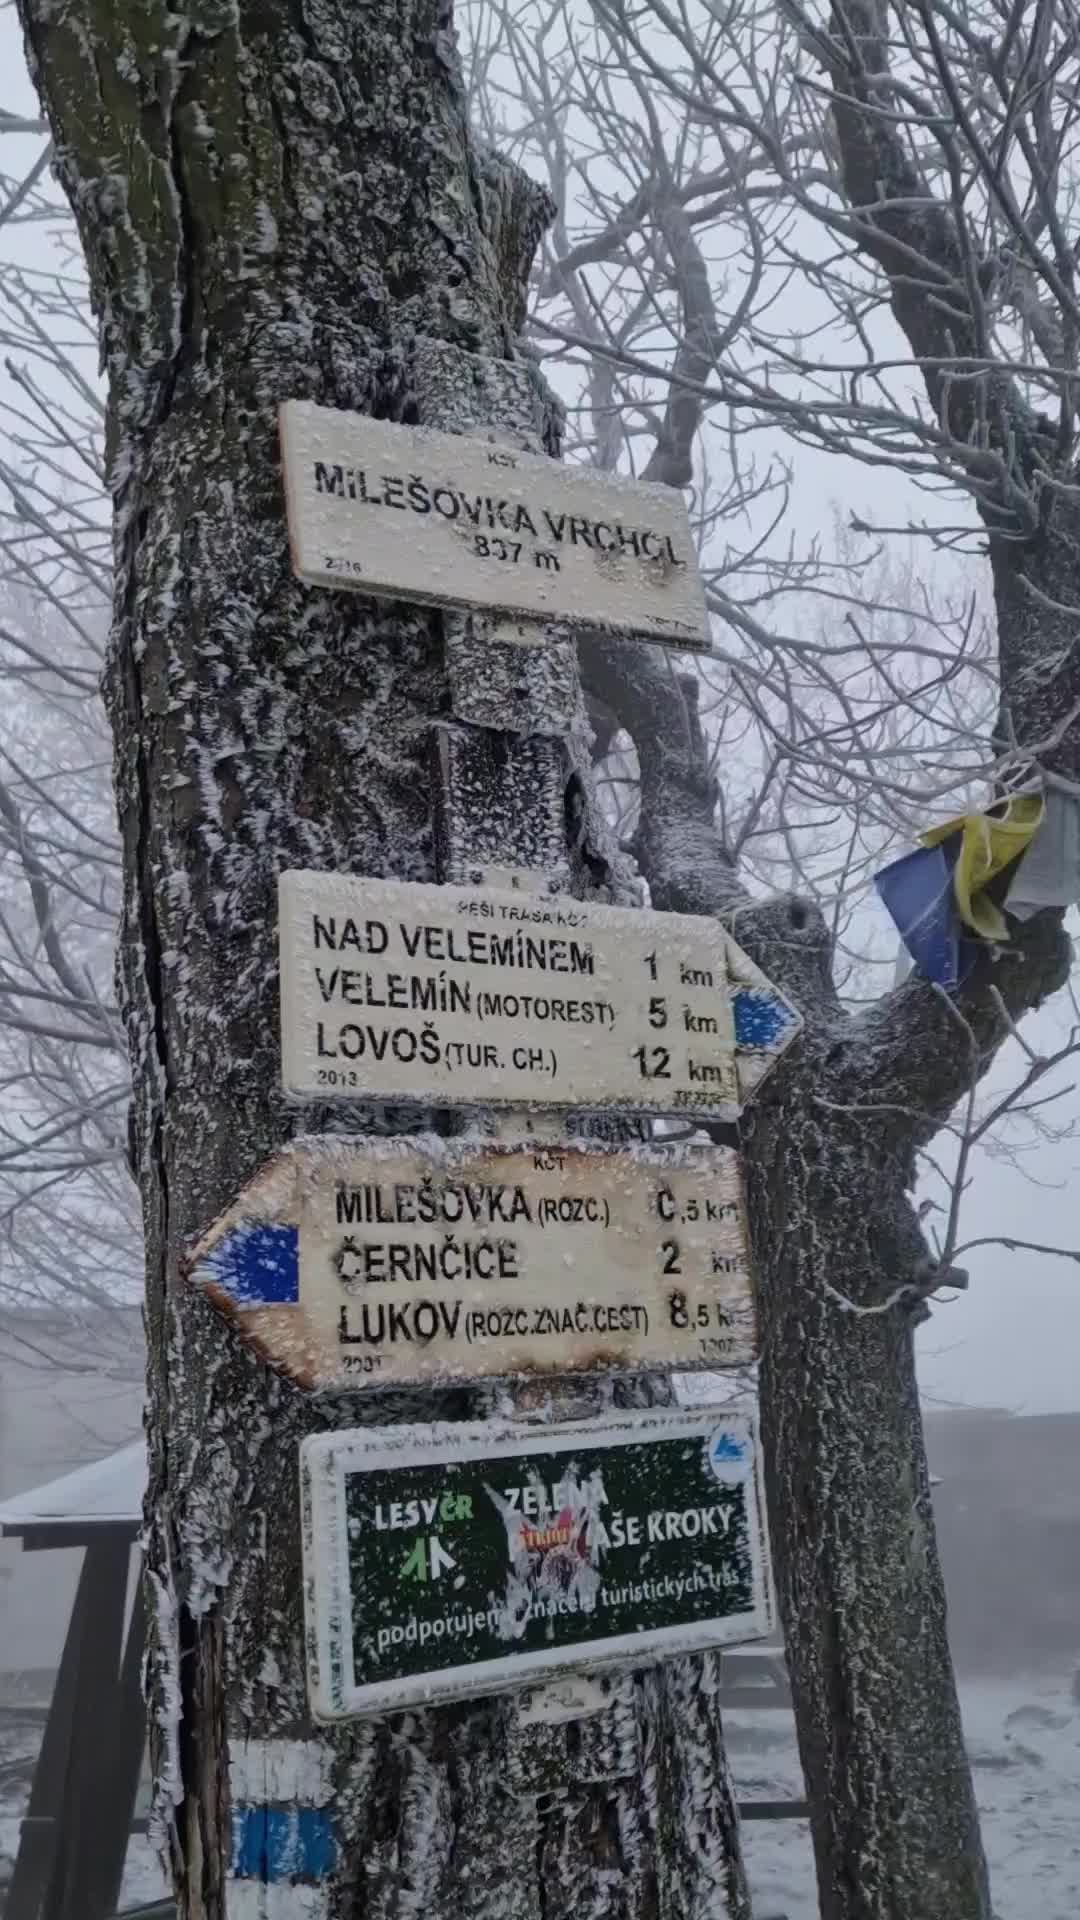 KČT
MILEŠOVKA VRCHOL
837 m
2016
PĚŠÍ TRASA KČT
NAD VELEMÍNEM 1 km
VELEMÍN (MOTOREST) 5 km
LOVOŠ (TUR. CH.) 12 km
2013
KČT
MILEŠOVKA (ROZC.) 0,5 km
ČERNČICE 2 km
LUKOV (ROZC.ZNAČ.CEST) 8,5 km
2001
LESYČR ZELENÁ
AŠE KROKY
podporujem značení turistických tras